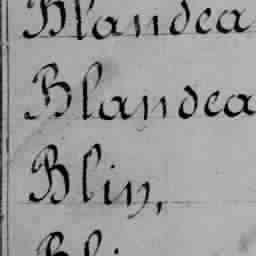 Blandea
Blandea
Blin,
Bli